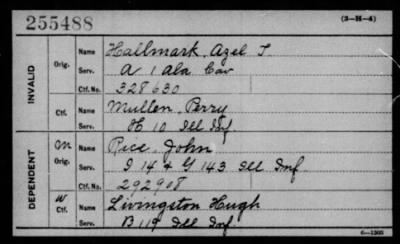 255488 (3-H-4)
INVALID
Orig. Name Hallmark, Azel T
Serv. A 1 Ala Cav
Ctf. No. 328630
Ctf. Name Mullen, Perry
Serv. H 10 Ill Inf.
DEPENDENT
M Orig. Name Rice, John
Serv. I 14 & G 143 Ill Inf
Ctf. No. 292908
W Ctf. Name Livingston Hugh
Serv. B 119 Ill Inf
6-1305